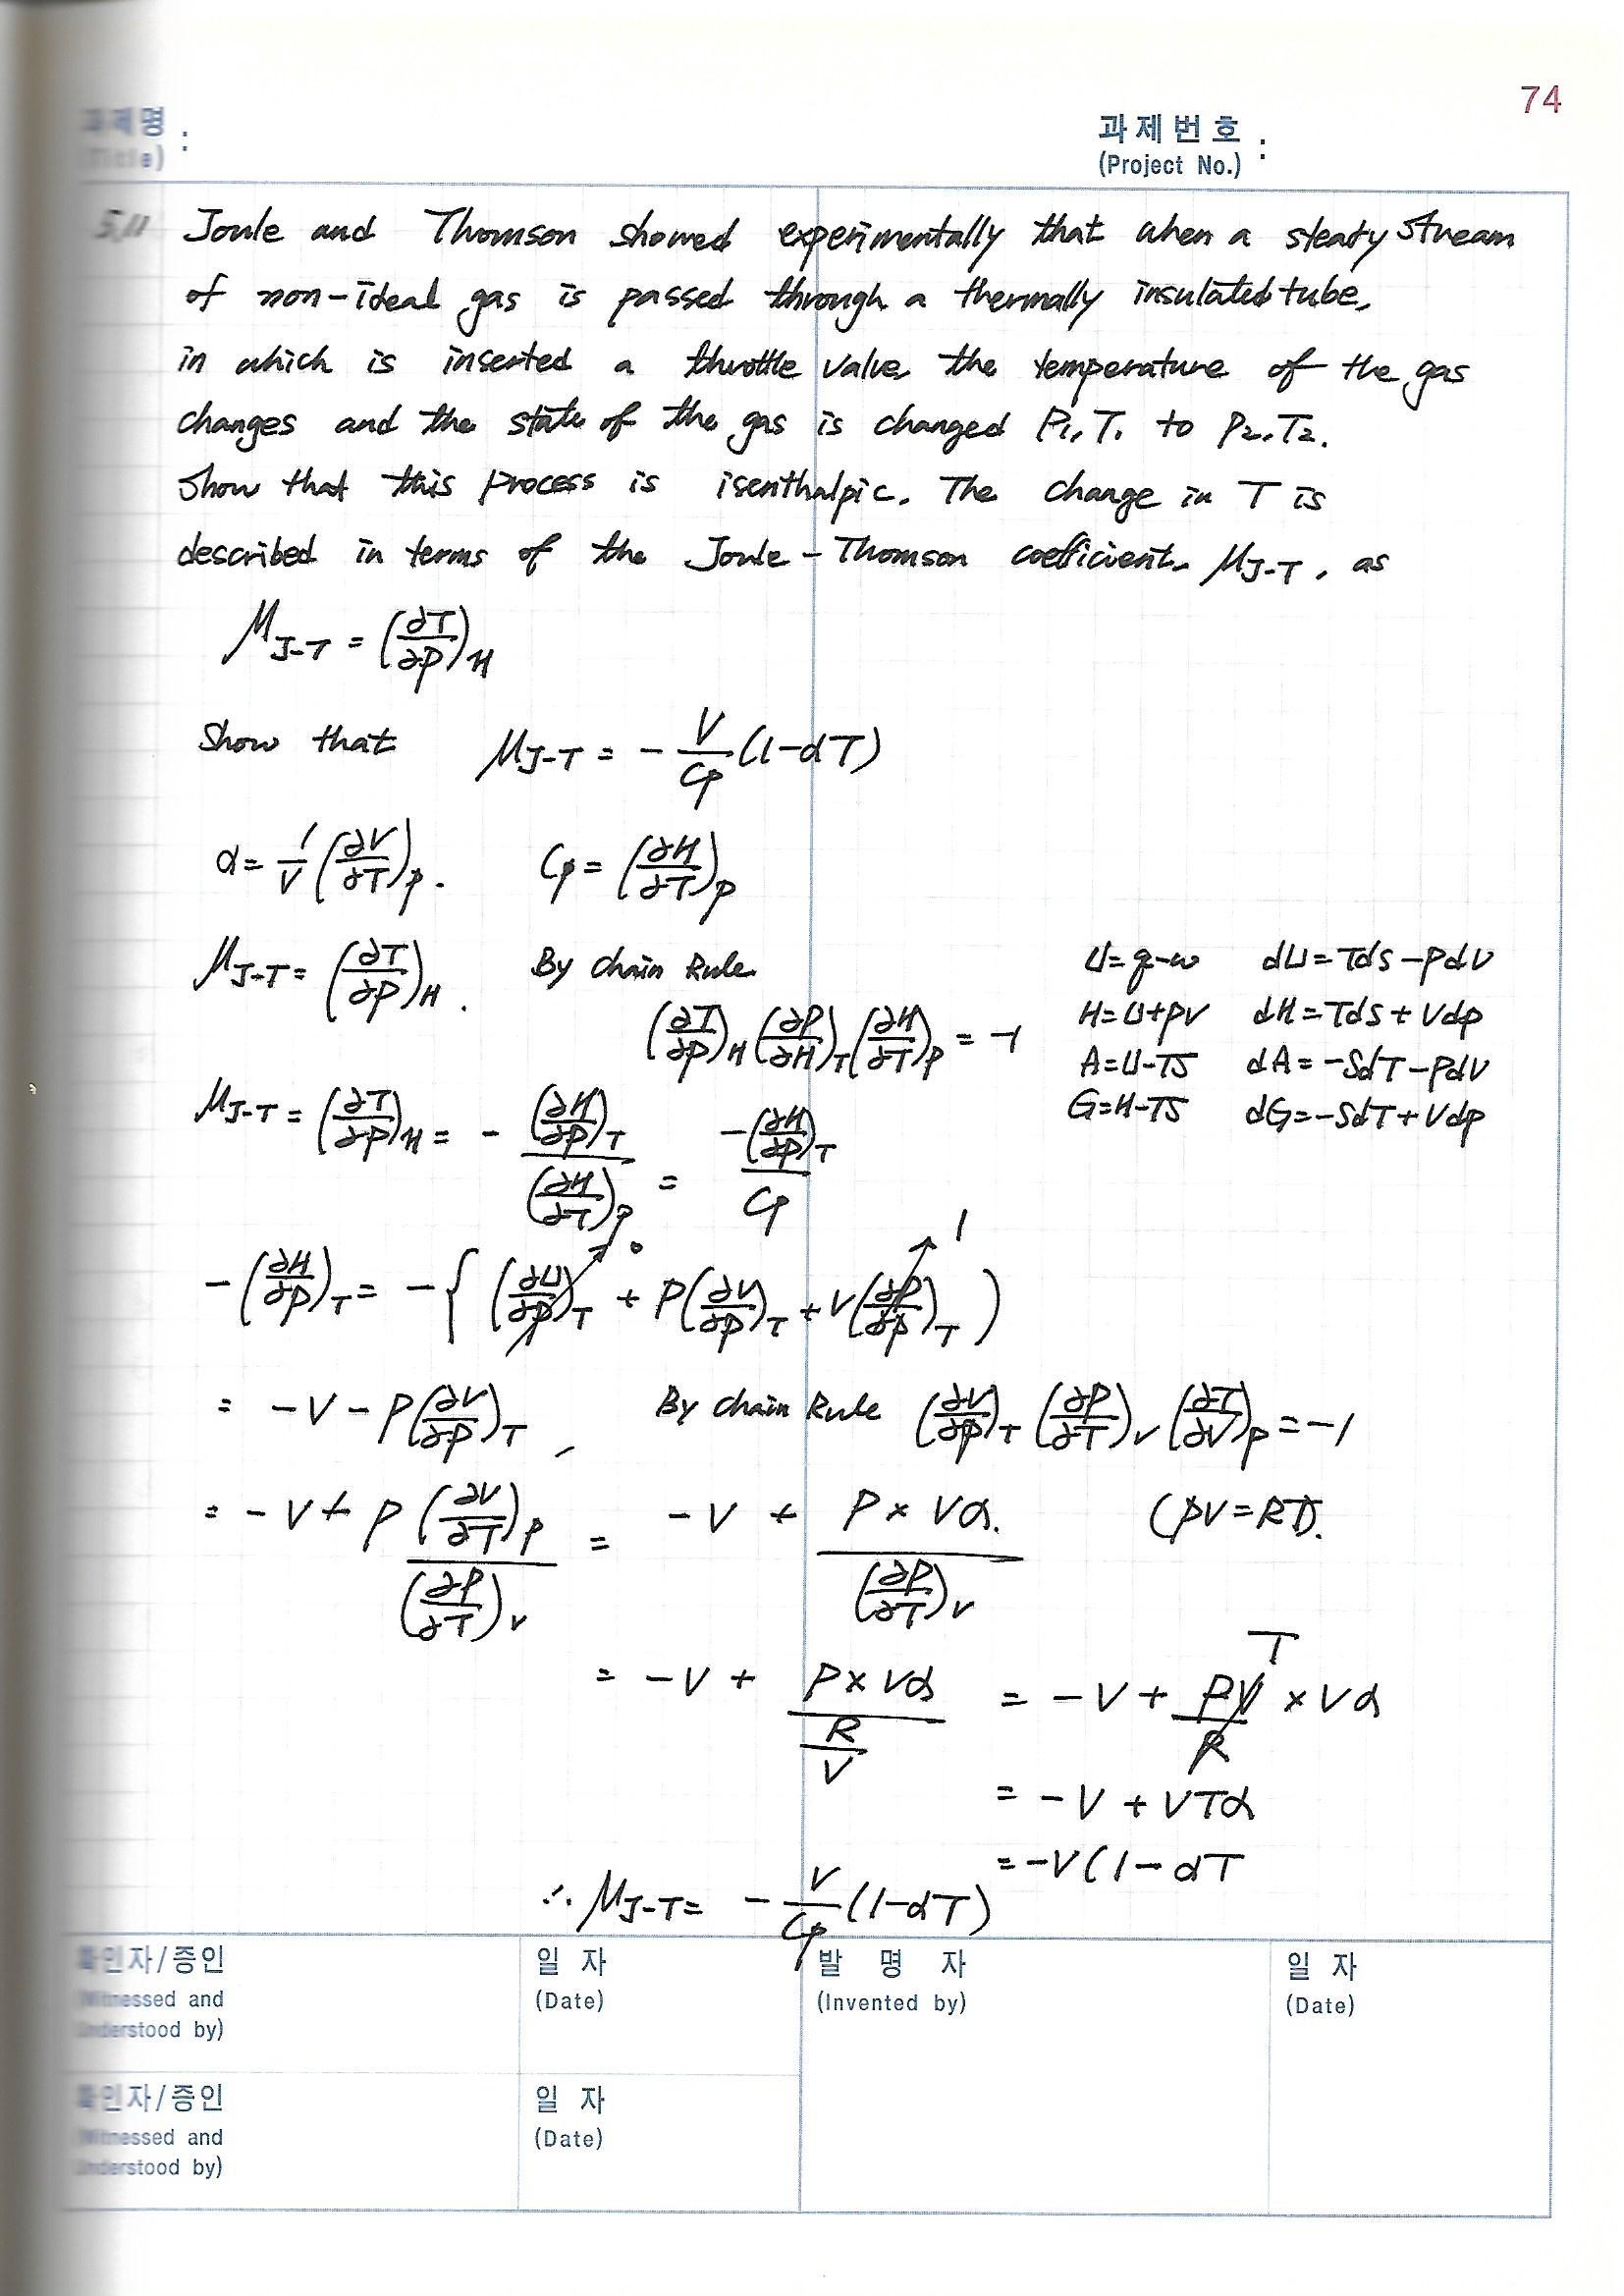 74
과제명 :
(Title)
과제번호 :
(Project No.)
5.11 Joule and Thomson showed experimentally that when a steady stream
of non-ideal gas is passed through a thermally insulated tube,
in which is inserted a throttle valve, the temperature of the gas
changes and the state of the gas is changed P1, T1 to P2, T2.
Show that this process is isenthalpic. The change in T is
described in terms of the Joule-Thomson coefficient, μJ-T, as
μJ-T = (∂T/∂P)H
Show that μJ-T = - V/Cp (1-αT)
α = 1/V (∂V/∂T)P. Cp = (∂H/∂T)P
μJ-T = (∂T/∂P)H. By chain Rule
(∂T/∂P)H (∂P/∂H)T (∂H/∂T)P = -1
U=q-w dU=TdS-PdV
H=U+PV dH=TdS+VdP
A=U-TS dA=-SdT-PdV
G=H-TS dG=-SdT+VdP
μJ-T = (∂T/∂P)H = - (∂H/∂P)T / (∂H/∂T)P = -(∂H/∂P)T / Cp
-(∂H/∂P)T = -{ (∂U/∂P)T → 0 + P(∂V/∂P)T + V(∂P/∂P)T → 1 )
= -V - P(∂V/∂P)T , By chain Rule (∂V/∂P)T (∂P/∂T)V (∂T/∂V)P = -1
= -V + P (∂V/∂T)P / (∂P/∂T)V = -V + P × Vα. / (∂P/∂T)V (PV=RT).
= -V + P × Vα / (R/V) = -V + PV/R T × Vα
= -V + VTα
= -V(1-αT
∴ μJ-T = - V/Cp (1-αT)
확인자/증인
(Witnessed and
Understood by)
일 자
(Date)
발 명 자
(Invented by)
일 자
(Date)
확인자/증인
(Witnessed and
Understood by)
일 자
(Date)